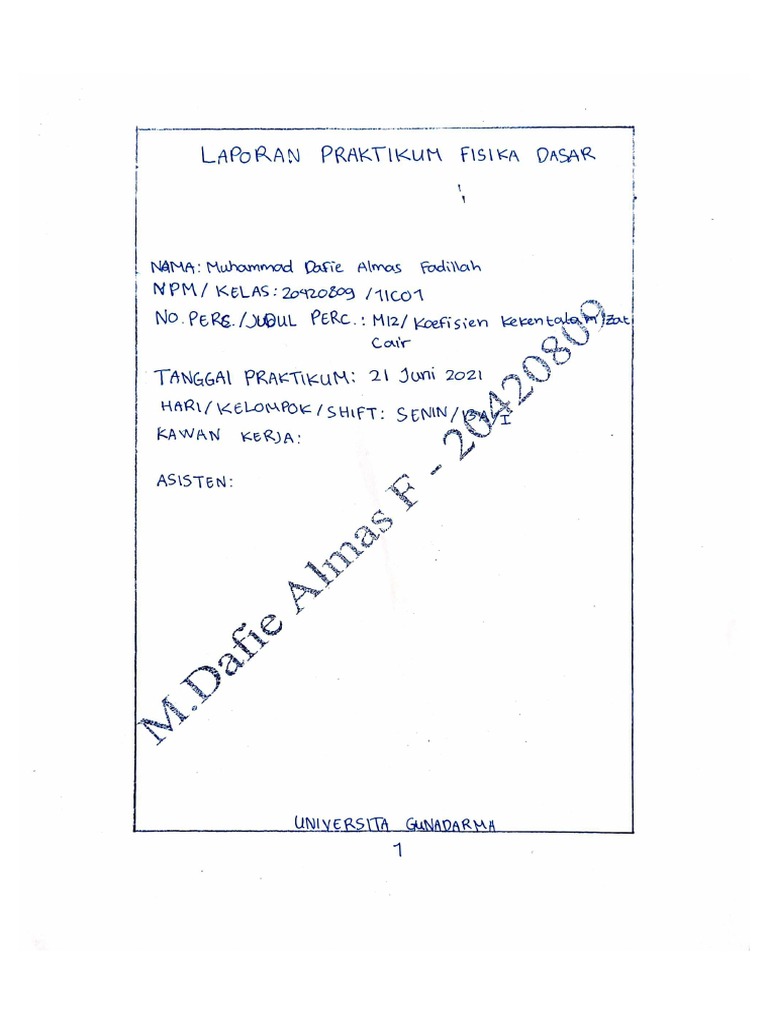 LAPORAN PRAKTIKUM FISIKA DASAR
NAMA: Muhammad Dafie Almas Fadillah
NPM/ KELAS: 20420809 /1IC01
NO. PERC./JUDUL PERC.: M12/ Koefisien Kekentalan/Zat
Cair
TANGGAl PRAKTIKUM: 21 Juni 2021
HARI/ KELOMPOK/ SHIFT: SENIN/ /I
KAWAN KERJA:
ASISTEN:
M.Dafie Almas F - 20420809
UNIVERSITA GUNADARMA
1